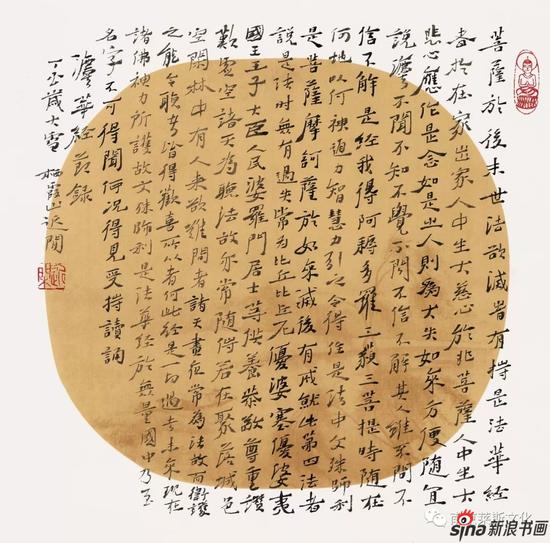 菩薩於後末世法欲滅時有持是法華經
者於在家出家人中生大慈心於非菩薩人中生大
悲心應作是念如是之人則為大失如來方便隨宜
說灋不聞不知不覺不問不信不解其人雖不問不
信不解是經我得阿耨多羅三藐三菩提時隨在
何地以何神通力智慧力引之令得住是法中文殊師利
是菩薩摩訶薩於如來滅後有成就此第四法者
說是法時無有過失常為比丘比丘尼優婆塞優婆夷
國王王子大臣人民婆羅門居士等供養恭敬尊重讚
歎虛空諸天為聽法故亦常隨侍若在聚落城邑
空閑林中有人來欲難問者諸天晝夜常為法故而衛護
之能令聽者皆得歡喜所以者何此經是一切過去未來現在
諸佛神力所護故文殊師利是法華經於無量國中乃至
名字不可得聞何況得見受持讀誦
灋華經節錄
丁酉歲大雪 栖霞山返聞
莱斯文化
sina新浪书画